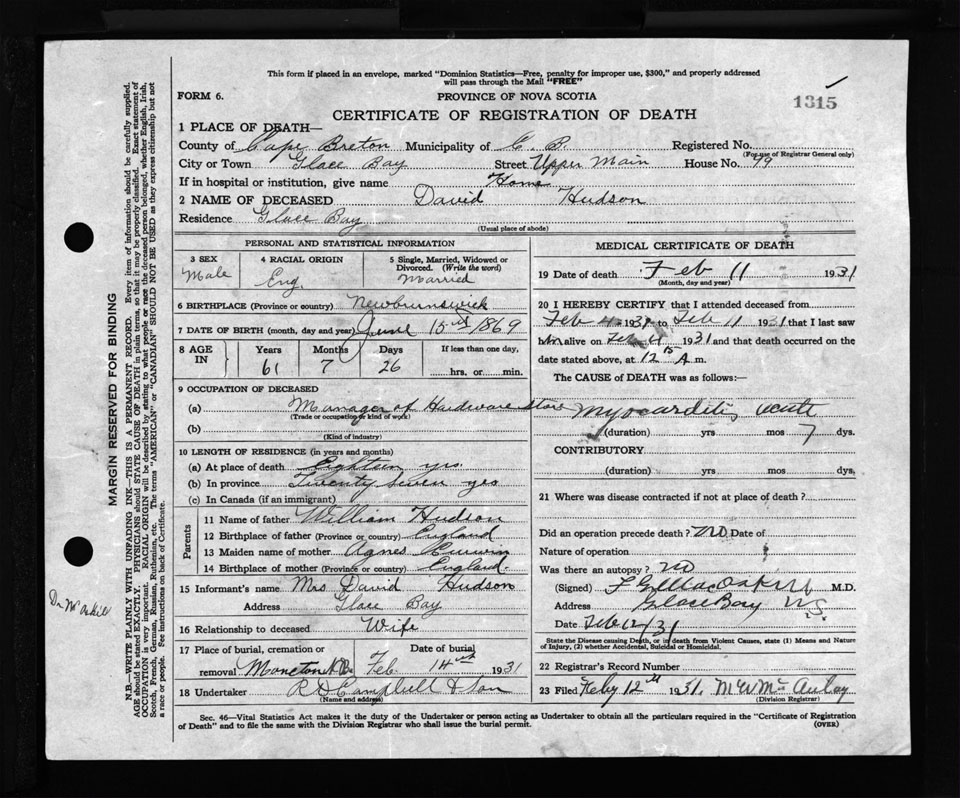 This form if placed in an envelope, marked "Dominion Statistics—Free, penalty for improper use, $300," and properly addressed
will pass through the Mail "FREE"
FORM 6. PROVINCE OF NOVA SCOTIA
1315
CERTIFICATE OF REGISTRATION OF DEATH
1 PLACE OF DEATH—
County of Cape Breton Municipality of C. B. Registered No.
(For use of Registrar General only)
City or Town Glace Bay Street Upper Main House No. 99
If in hospital or institution, give name Home
2 NAME OF DECEASED David Hudson
Residence Glace Bay
(Usual place of abode)
PERSONAL AND STATISTICAL INFORMATION
3 SEX 4 RACIAL ORIGIN 5 Single, Married, Widowed or
Divorced. (Write the word)
Male Eng. Married
6 BIRTHPLACE (Province or country) Newbrunswick
7 DATE OF BIRTH (month, day and year) June 15th 1869
8 AGE IN Years Months Days If less than one day,
61 7 26 hrs. or min.
9 OCCUPATION OF DECEASED
(a) Manager of Hardware store
(Trade or occupation or kind of work)
(b)
(Kind of industry)
10 LENGTH OF RESIDENCE (in years and months)
(a) At place of death Eighteen yrs.
(b) In province Twenty seven yrs
(c) In Canada (if an immigrant)
Parents
11 Name of father William Hudson
12 Birthplace of father (Province or country) England
13 Maiden name of mother Agnes
14 Birthplace of mother (Province or country) England.
15 Informant's name Mrs David Hudson
Address Glace Bay
16 Relationship to deceased Wife
17 Place of burial, cremation or
removal Moncton N.B. Feb 14th 1931
18 Undertaker R D Campbell & Son
(Name and address)
MEDICAL CERTIFICATE OF DEATH
19 Date of death Feb 11 1931
(Month, day and year)
20 I HEREBY CERTIFY that I attended deceased from
Feb 4 1931 to Feb 11 1931 that I last saw
him alive on Feb 1931 and that death occurred on the
date stated above, at 12 15 A m.
The CAUSE of DEATH was as follows:—
Myocarditis, acute
(duration) yrs mos 7 dys.
CONTRIBUTORY
(duration) yrs mos dys.
21 Where was disease contracted if not at place of death ?
Did an operation precede death ? No Date of
Nature of operation
Was there an autopsy ? No
(Signed) M.D.
Address Glace Bay N.S.
Date Feb 12/31
State the Disease causing Death, or in death from Violent Causes, state (1) Means and Nature
of Injury, (2) whether Accidental, Suicidal or Homicidal.
22 Registrar's Record Number
23 Filed Feby 12th 1931. McAulay
(Division Registrar)
Sec. 46—Vital Statistics Act makes it the duty of the Undertaker or person acting as Undertaker to obtain all the particulars required in the "Certificate of Registration
of Death" and to file the same with the Division Registrar who shall issue the burial permit. (OVER)
MARGIN RESERVED FOR BINDING
N.B.—WRITE PLAINLY WITH UNFADING INK—THIS IS A PERMANENT RECORD. Every item of information should be carefully supplied.
AGE should be stated EXACTLY. PHYSICIANS should STATE CAUSE OF DEATH in plain terms, so that it may be properly classified. Exact statement of
OCCUPATION is very important. RACIAL ORIGIN will be described by stating to what people or race the deceased person belonged, whether English, Irish,
Scotch, French, German, Russian, Ruthenian, etc. The terms "AMERICAN" or "CANADIAN" SHOULD NOT BE USED as they express citizenship but not
a race or people. See instructions on back of Certificate.
Dr McAskill